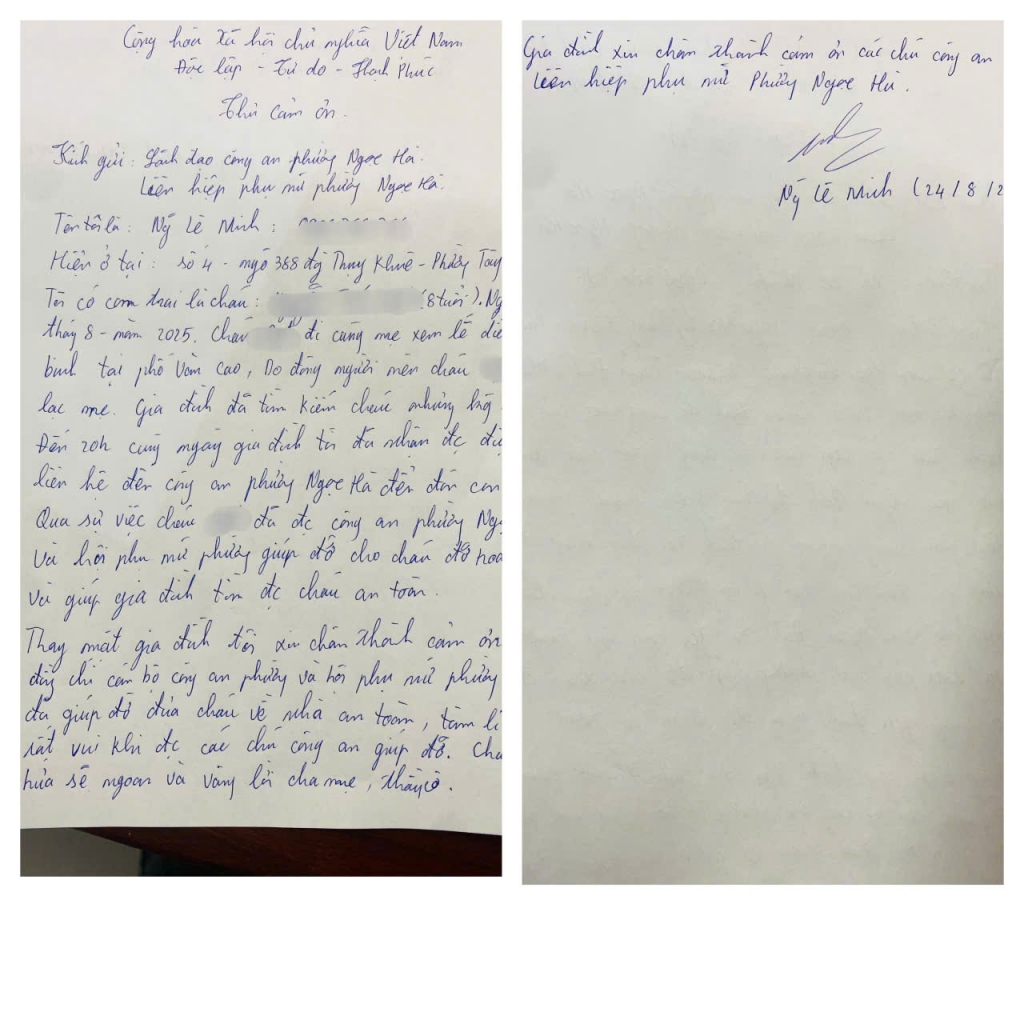 Cộng hòa xã hội chủ nghĩa Việt Nam
Độc lập - Tự do - Hạnh Phúc
Thư cảm ơn.
Kính gửi: Lãnh đạo công an phường Ngọc Hà.
Liên hiệp phụ nữ phường Ngọc Hà.
Tên tôi là: Ng Lê Minh:
Hiện ở tại: số 4 - ngõ 388 đg Thụy Khuê - Phường Tây
Tôi có con trai là cháu: (8 tuổi). Ng
thág 8 - năm 2025. Cháu đi cùng mẹ xem lễ
binh tại phố Văn Cao, Do đông người nên cháu
lạc mẹ. Gia đình đã tìm kiếm cháu nhưng
Đến 20h cùng ngày gia đình tôi đã nhận đc
liên hệ đến công an phường Ngọc Hà đến đón con
Qua sự việc cháu đã đc công an phường Ngọ
và hội phụ nữ phường giúp đỡ cho cháu đỡ hoả
và giúp gia đình tìm đc cháu an toàn.
Thay mặt gia đình tôi xin chân thành cảm ơn
đồng chí cán bộ công an phường và hội phụ nữ phường
đã giúp đỡ đưa cháu về nhà an toàn, tâm lí
rất vui khi đc các chú công an giúp đỡ. Chá
hứa sẽ ngoan và vâng lời cha mẹ, thầy cô.
Gia đình xin chân thành cảm ơn các chú công an
Liên hiệp phụ nữ Phường Ngọc Hà.
Ng Lê Minh (24/8/2